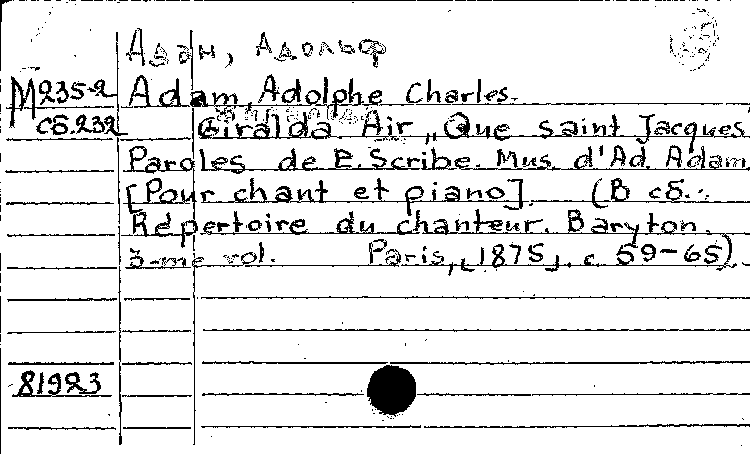 Адан, Адольф
М235-2 Adam, Adolphe Charles.
сб.232 Giralda. Air „Que saint Jacques"
Paroles de E. Scribe. Mus. d'Ad. Adam.
[Pour chant et piano]. (В сб.:
Répertoire du chanteur. Baryton.
3-me vol. Paris, [1875]. с. 59-65).
81923